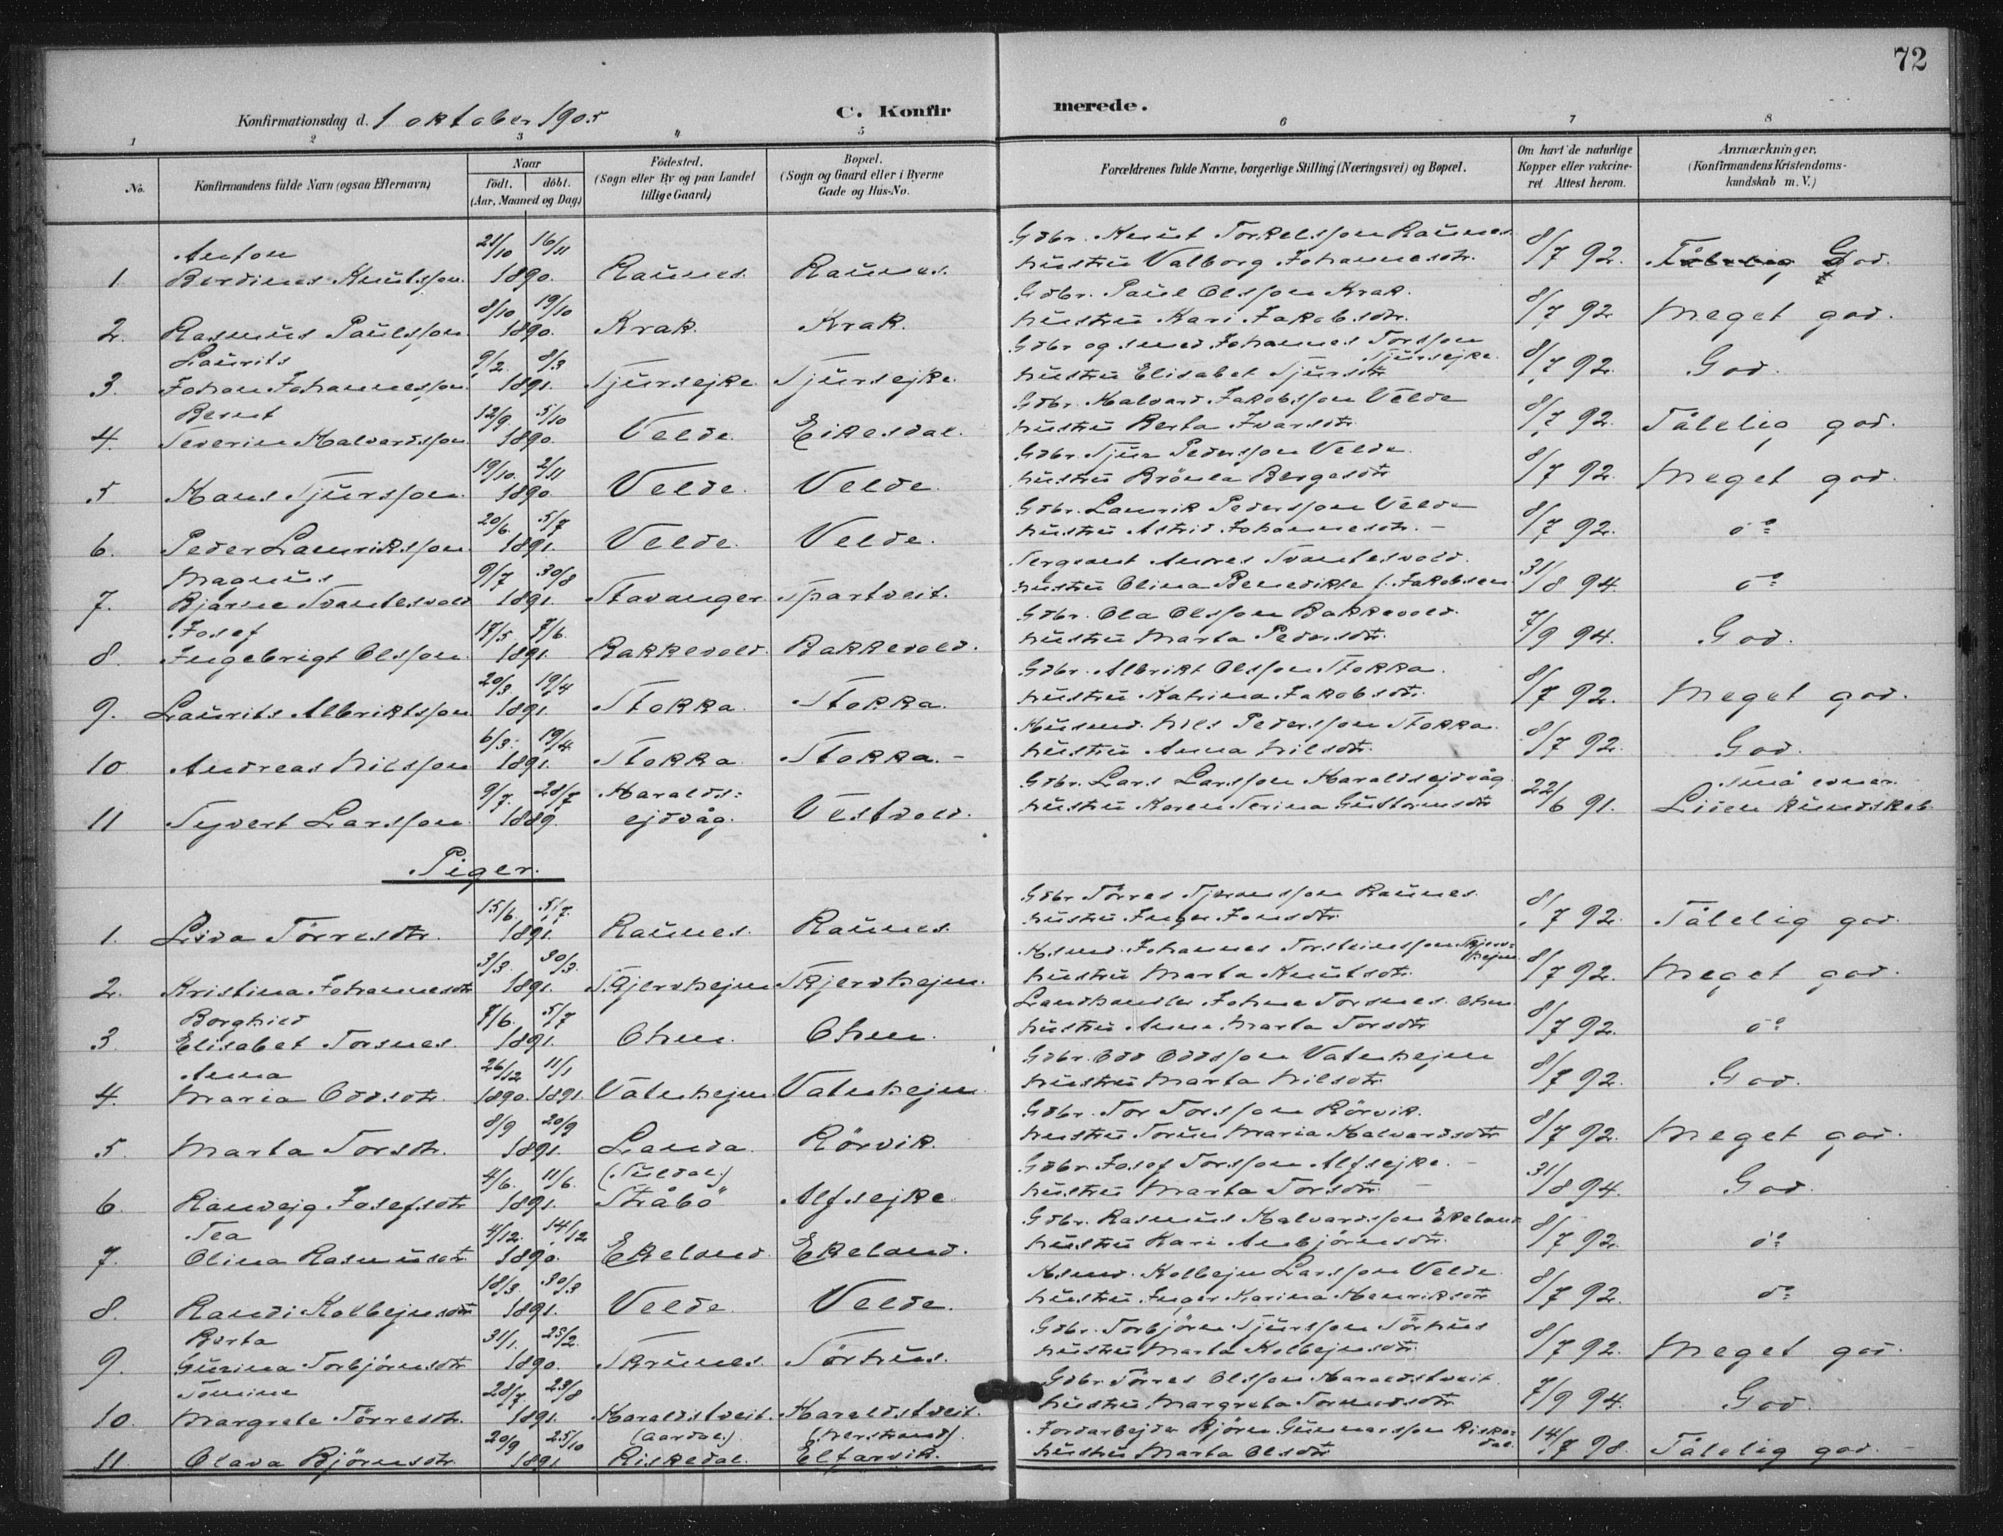 72
Konfirmationsdag d. 1 oktober 1905
C. Konfir merede.
1 2 3 4 5 6 7 8
No. Konfirmandens fulde Navn (ogsaa Efternavn) Naar født. døbt. (Aar, Maaned og Dag) Fødested. (Sogn eller By og paa Landet tillige Gaard) Bopæl. (Sogn og Gaard eller i Byerne Gade og Hus-No. Forældrenes fulde Navne, borgerlige Stilling (Næringsvei) og Bopæl. Om havt de naturlige Kopper eller vakcineret Attest herom. Anmærkninger. (Konfirmandens Kristendomskundskab m. V.)
Anton 21/10 16/11 Gdbr. Knut Torkelsson Raunes
1 Berdines Knutsson 1890. Raunes. Raunes. hustru Valborg Johannesdtr. 8/7 92. Tålelig God.
8/10 19/10 Gdbr. Paul Olsson Krak.
2. Rasmus Paulsson 1890. Krak. Krak. hustru Kari Jakobsdtr. 8/7 92 Meget god.
Laurits 9/2. 8/3 Gdbr og smed Johannes Torsson
3. Johan Johannesson. 1891. Tjursejke. Tjursejke. hustru Elisabet Tjursdtr Tjursejke. 8/7 92. God.
Bernt 12/9 5/10 Gdbr. Halvard Jakobsson Velde
4. Severin Halvardsson 1890. Velde. Eikesdal. hustru Berta Ivarsdtr. 8/7 92. Tålelig god.
19/10. 2/11 Gdbr. Tjur Pedersson Velde.
5 Hans Tjursson. 1890 Velde. Velde. hustru Brönla Bergesdtr 8/7 92. Meget god.
20/6. 5/7 Gdbr. Lamrik Pedersson Velde
6. Peder Lamriksson 1891. Velde. Velde. hustru Astrid Johannesdtr. - 8/7 92. do
Magnus 9/7 30/8 Sergeant Andres Svantesvold.
7. Bjarne Svantesvold 1891. Stavanger Spartveit. hustru Olina Benedikte f. Jakobsen 31/8 94. do
Josef 17/5 7/6. Gdbr. Ola Olsson Bakkevold.
8. Ingebrigt Olsson. 1891. Bakkevold. Bakkevold. hustru Marta Pedersdtr. 7/9 94. God.
20/3. 19/4 Gdbr. Albrikt Olsson Stokka.
9. Laurits Albriktsson 1891. Stokka. Stokka. hustru Katrina Jakobsdtr. 8/7 92. Meget god.
6/3. 19/4 Husmd. Nils Pedersson Stokka.
10 Andreas Nilsson 1891. Stokka Stokka. - hustru Anna Nilsdtr. 8/7 92. God.
9/7. 28/7 Haralds: Gdbr. Lars Larsson Haraldsejdvåg Små evner.
11 Syvert Larsson. 1889. ejdvåg. Vestvold. hustru Karen Serina Gustavsdtr 22/6 91. Liden kundskab
Piger.
15/6. 5/7. Gdbr Törres Tjeransson Raunes.
1. Lisa Törresdtr. 1891. Raunes. Raunes. hustru Inger Jonsdtr. 8/7 92. Tålelig god.
3/3. 30/3. Husmd. Johannes Torsteinsson Skjervhejm
2. Kristina Johannesdtr 1891. Skjervhejm Skjervhejm. hustru Marta Knutsdtr. 8/7 92. Meget god.
Borghild 7/6. 5/7 Landhandler Johne Torsnes. Ohm
3 Elisabet Torsnes. 1891. Ohm. Ohm. hustru Anna Marta Torsdtr 8/7 92. do
Anna 26/12 11/1 Gdbr. Odd Oddsson Vatnhejm
4. Maria Oddsdtr. 1890. 1891. Vatnhejm Vatnhejm. hustru Marta Nilsdtr. 8/7 92. God.
8/9 20/9 Gdbr. Tor Torsson Rörvik.
5. Marta Torsdtr. 1891. Landa. Rörvik. hustru Torun Maria Halvardsdtr 8/7 92. Meget god.
4/6. 11/6. (Suldal.) Gdbr. Josef Torsson Alfsejke. -
6 Ranvejg Josefsdtr 1891. Stråbö Alfsejke. hustru Marta Torsdtr. - 31/8 94. God.
Tea 4/12. 14/12 Gdbr. Rasmus Halvardsson Ekeland
7. Olina Rasmusdtr 1890. Ekeland. Ekeland. hustru Kari Anbjörnsdtr. 8/7 92. do
18/3. 30/3 Husmd. Kolbejn Larsson Velde.
8. Randi Kolbejnsdtr 1891. Velde Velde. hustru Inger Karina Henriksdtr 8/7 92. do
Berta 31/1. 23/2. Gdbr. Torbjörn Tjursson Törhus
9. Gurina Torbjörnsdtr 1890. Skrunes. Törhus. hustru Marta Kolbejnsdtr. 8/7 92. Meget god.
Tomine 28/7 23/8 Gdbr. Törres Olsson Haraldstveit.
10. Margrete Törresdtr. 1891. Haraldstveit. Haraldstveit. hustru Margreta Tormodsdtr. 7/9 94. God.
20/9 25/10 (Aardal.) (Nerstrand). Jordarbejder Björn Gunnarsson Riskedal
11. Olava Björnsdtr 1891 Riskedal. Elfarvik. hustru Marta Olsdtr 14/7 98. Tålelig god. -